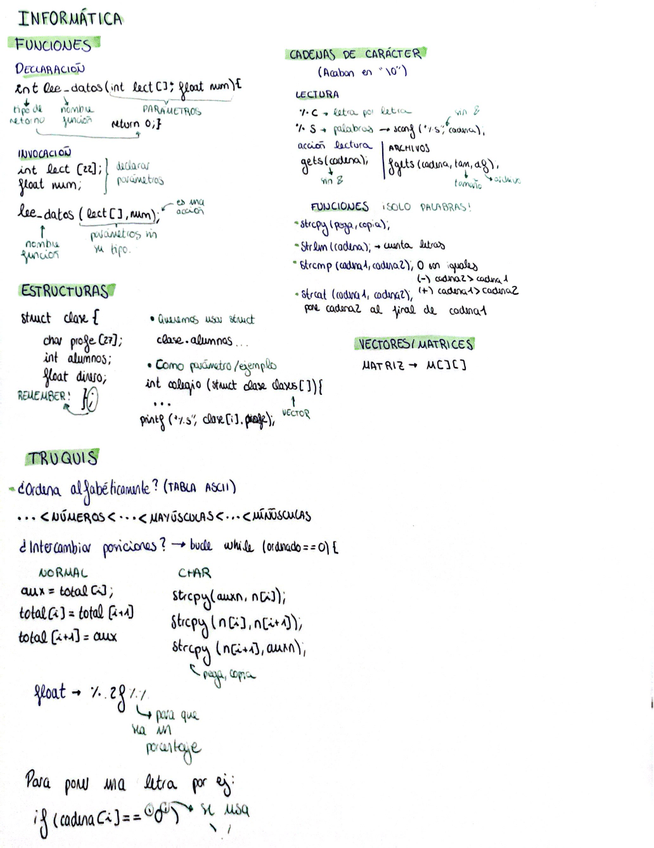 INFORMÁTICA
FUNCIONES
DECLARACIÓN
int lee_datos(int lect[]; float num){
tipo de retorno
nombre función
PARÁMETROS
return 0;}
INVOCACIÓN
int lect [22];
float num;
declarar parámetros
lee_datos (lect[], num);
es una acción
nombre función
parámetros sin su tipo.
ESTRUCTURAS
struct clase {
char profe [27];
int alumnos;
float dinero;
REMEMBER! };
• Queremos usar struct
clase.alumnos...
• Como parámetro/ejemplo
int colegio (struct clase clases[]){
...
VECTOR
printf ("%s", clase[i].profe);
TRUQUIS
¿Ordena alfabéticamente? (TABLA ASCII)
... < NÚMEROS < ... < MAYÚSCULAS < ... < MINÚSCULAS
¿Intercambiar posiciones? → bucle while (ordenado==0){
NORMAL
aux = total[i];
total[i] = total [i+1]
total [i+1] = aux
CHAR
strcpy(auxn, n[i]);
strcpy (n[i], n[i+1]);
strcpy (n[i+1], auxn);
pega, copia
float → %.2f %%
para que
sea un
porcentaje
Para poner una letra por ej:
if (cadena[i]==
se usa
' '
CADENAS DE CARÁCTER
(Acaban en "\0")
LECTURA
% C → letra por letra
sin &
% S → palabras → scanf ("%s", cadena);
acción lectura
gets(cadena);
sin &
ARCHIVOS
fgets(cadena, tam, af);
tamaño
archivo
FUNCIONES ¡SOLO PALABRAS!
• strcpy(pega, copia);
• strlen (cadena); → cuenta letras
• strcmp (cadena1, cadena2); 0 son iguales
(-) cadena2 > cadena1
(+) cadena1 > cadena2
• strcat (cadena1, cadena2);
pone cadena2 al final de cadena1
VECTORES/MATRICES
MATRIZ → M[][]